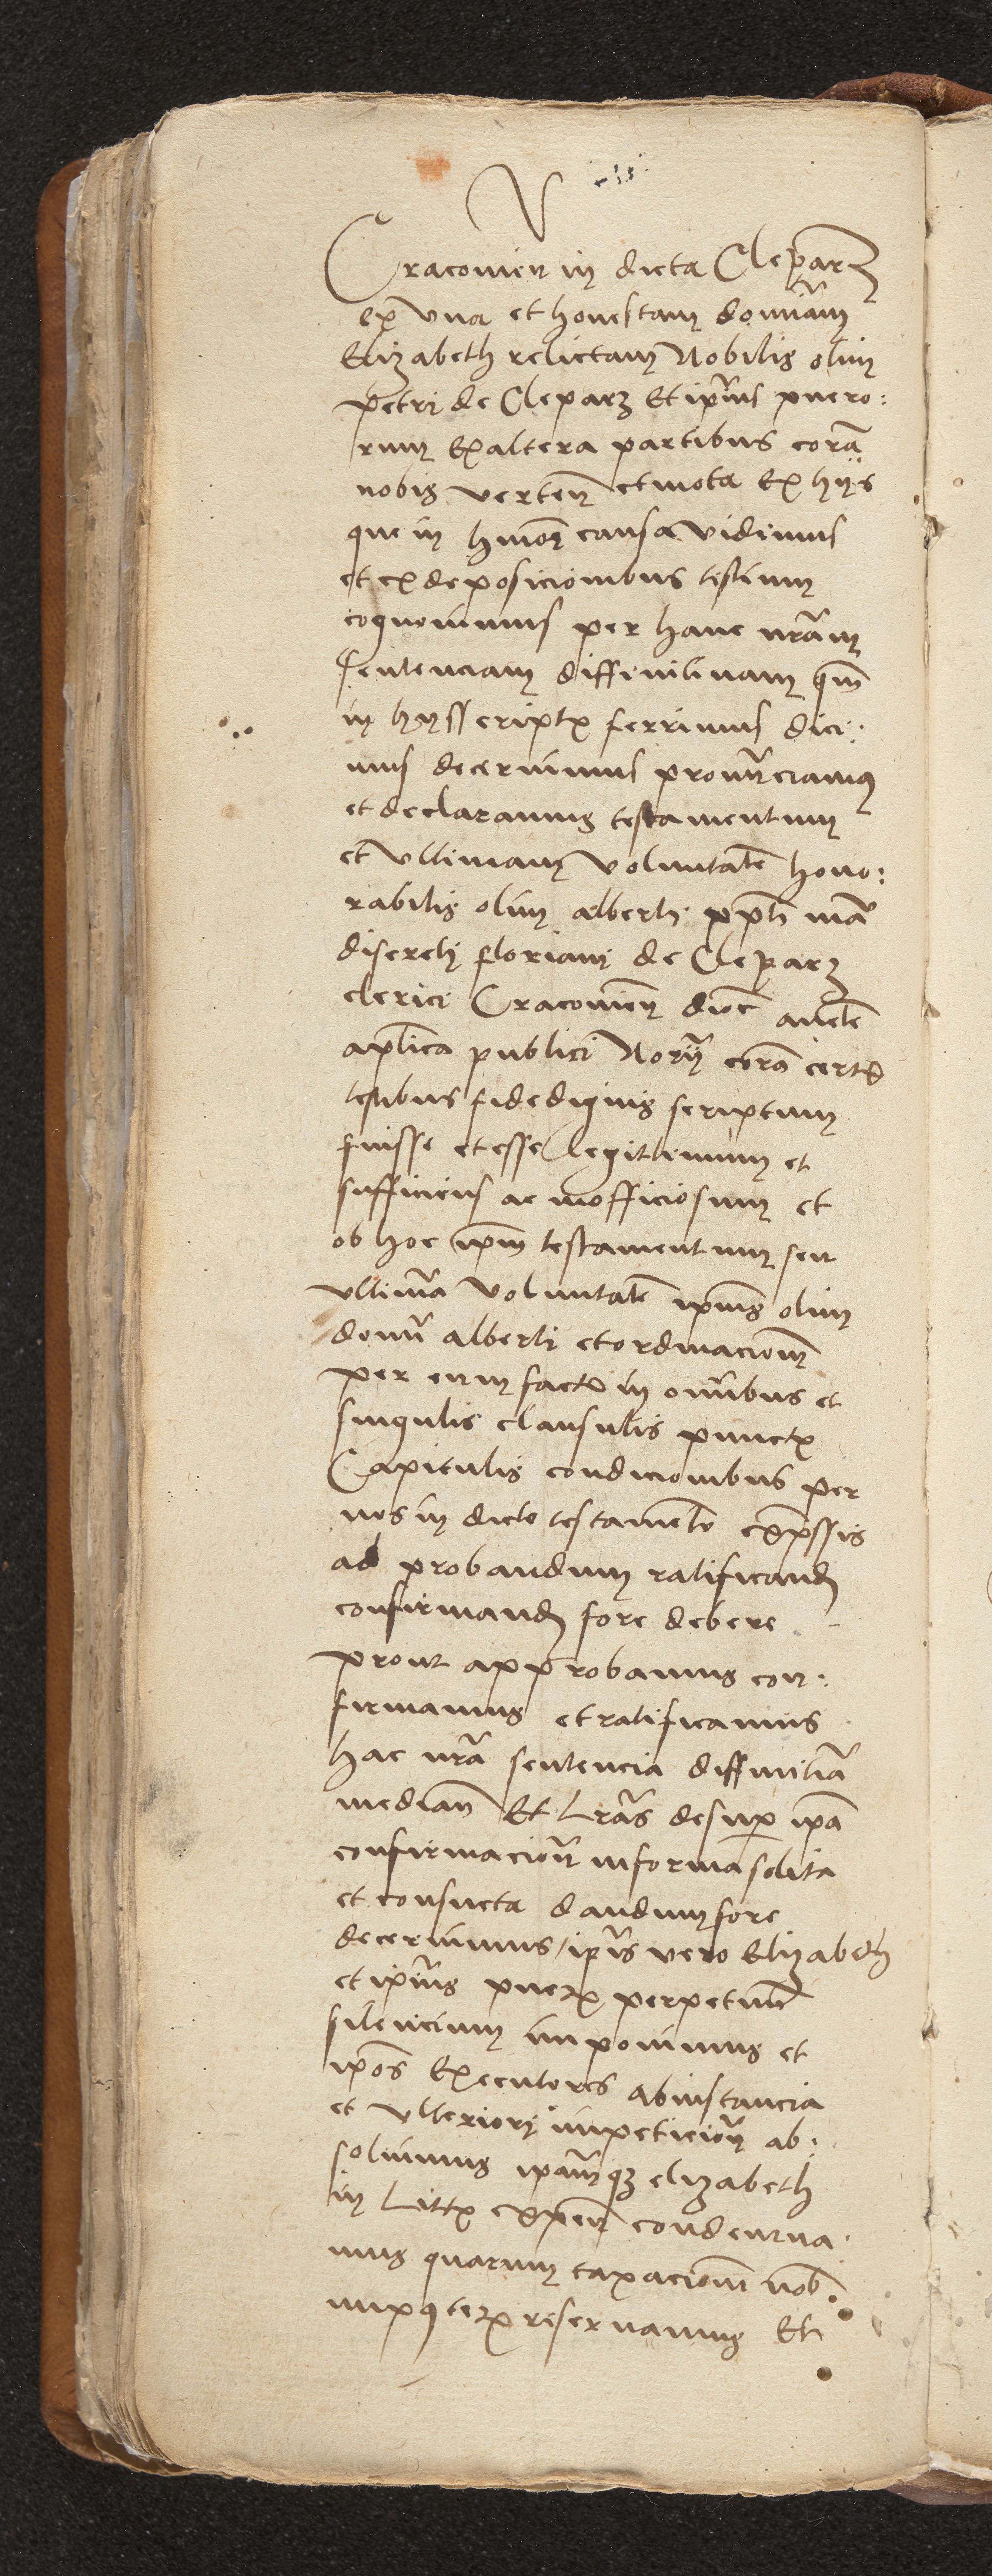 V
Cracovien in dicta Cleparz
ex una et honestam dominam
Elizabeth relictam Nobilis olim
petri de Cleparz Et ipsius puero:
rum Ex altera partibus corã
nobis verteñ et mota Ex hijs
que in hmõi causa vidimus
et ex deposicionibus testium
cognovimus per hanc nrãm
sentenciam diffinitivam quã
in hijs scriptis ferrimus dici:
mus decernimus pronũnciamus
et declaramus testamentum
et ultimam voluntatẽ hono:
rabilis olim alberti ppti
discreti floriani de Cleparz
clerici Cracovieñ dioc auctẽ
aplica publici Norij corã certis
testibus fidedignis scriptum
fuisse et esse Legittimum et
sufficiens ac inofficiosum et
ob hoc ipm testamentum seu
ultimã voluntatẽ ipius olim
domĩ alberti et ordinacionem
per eum factã in omĩbus et
singulis clausulis punctis
Capitulis condicionibus per
nos in dicto testamẽto expssis
ad probandum ratificand
confirmand fore debere
prout approbamus con:
firmamus et ratificamus
hac nrã sentencia diffinitiã
mediañ Et Lrãs desuper ipã
confirmacioñ in forma solita
et consueta dandum fore
decernimus / ipĩs vero Elizabeth
et ipĩus pueris perpetuũ
silencium imponimus et
ipõs Executores ab instancia
et ulteriori impeticioñ ab:
solvimus ipamqz elizabeth
in Littis expeñ condemna
mus quarum taxacionem nob
imposterum reservamus Et